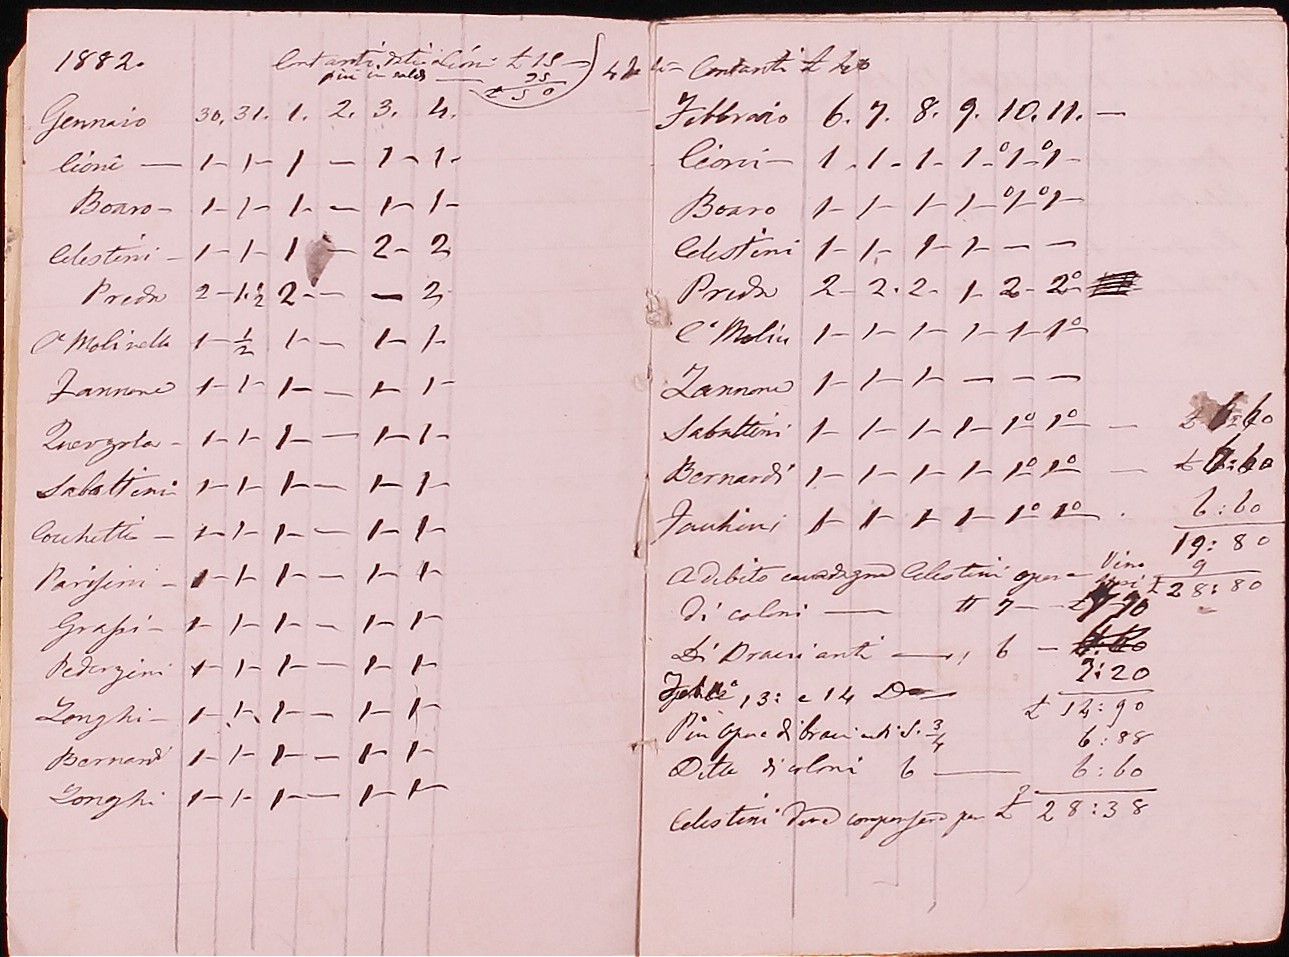 1882.
Contanti dati Cioni £ 25
più in saldo 25
£ 50
Gennaio 30. 31. 1. 2. 3. 4.
Cioni — 1- 1- 1 — 1- 1-
Boaro - 1- 1- 1- — 1- 1-
Celestini - 1- 1- 1 — 2- 2
Preda 2 - 1.½ 2 - — — 2
Ca Molinella 1- ½ 1- — 1- 1-
Zannone 1- 1- 1- — 1- 1-
Querzola - 1- 1- 1- — 1- 1-
Sabattini 1- 1- 1- — 1- 1-
Cochetti - 1- 1- 1- — 1- 1-
Parisini - 1- 1- 1- — 1- 1-
Grassi - 1- 1- 1- — 1- 1-
Pederzini 1- 1- 1- — 1- 1-
Longhi - 1- 1- 1- — 1- 1-
Bernardi 1- 1- 1- — 1- 1-
Longhi 1- 1- 1- — 1- 1-
Contanti £
Febbraio 6. 7. 8. 9. 10. 11. —
Cioni - 1 - 1 - 1 - 1 - º1 - º1 -
Boaro 1- 1- 1 - 1- º1- º1-
Celestini 1- 1- 1- 1- — —
Preda 2- 2. 2- 1- 2- 2º
Ca Molin 1- 1- 1- 1- 1- 1º
Zannone 1- 1- 1- — — —
Sabattini 1- 1- 1- 1- 1º 1º — £ 6:60
Bernardi 1- 1- 1- 1- 1º 1º — £ 6:60
1- 1- 1- 1- 1º 1º - . 6:60
19:80
A debito Celestini opera Vino 9
£ 28:80
di coloni — # 7 — 7.70
Di Braccianti — , 6 —
7:20
13: e 14 D —
£ 14:90
Più opere di braccianti 5. ¾ 6:88
Dette di coloni 6 — 6:60
Celestini deve compensare per £ 28:38